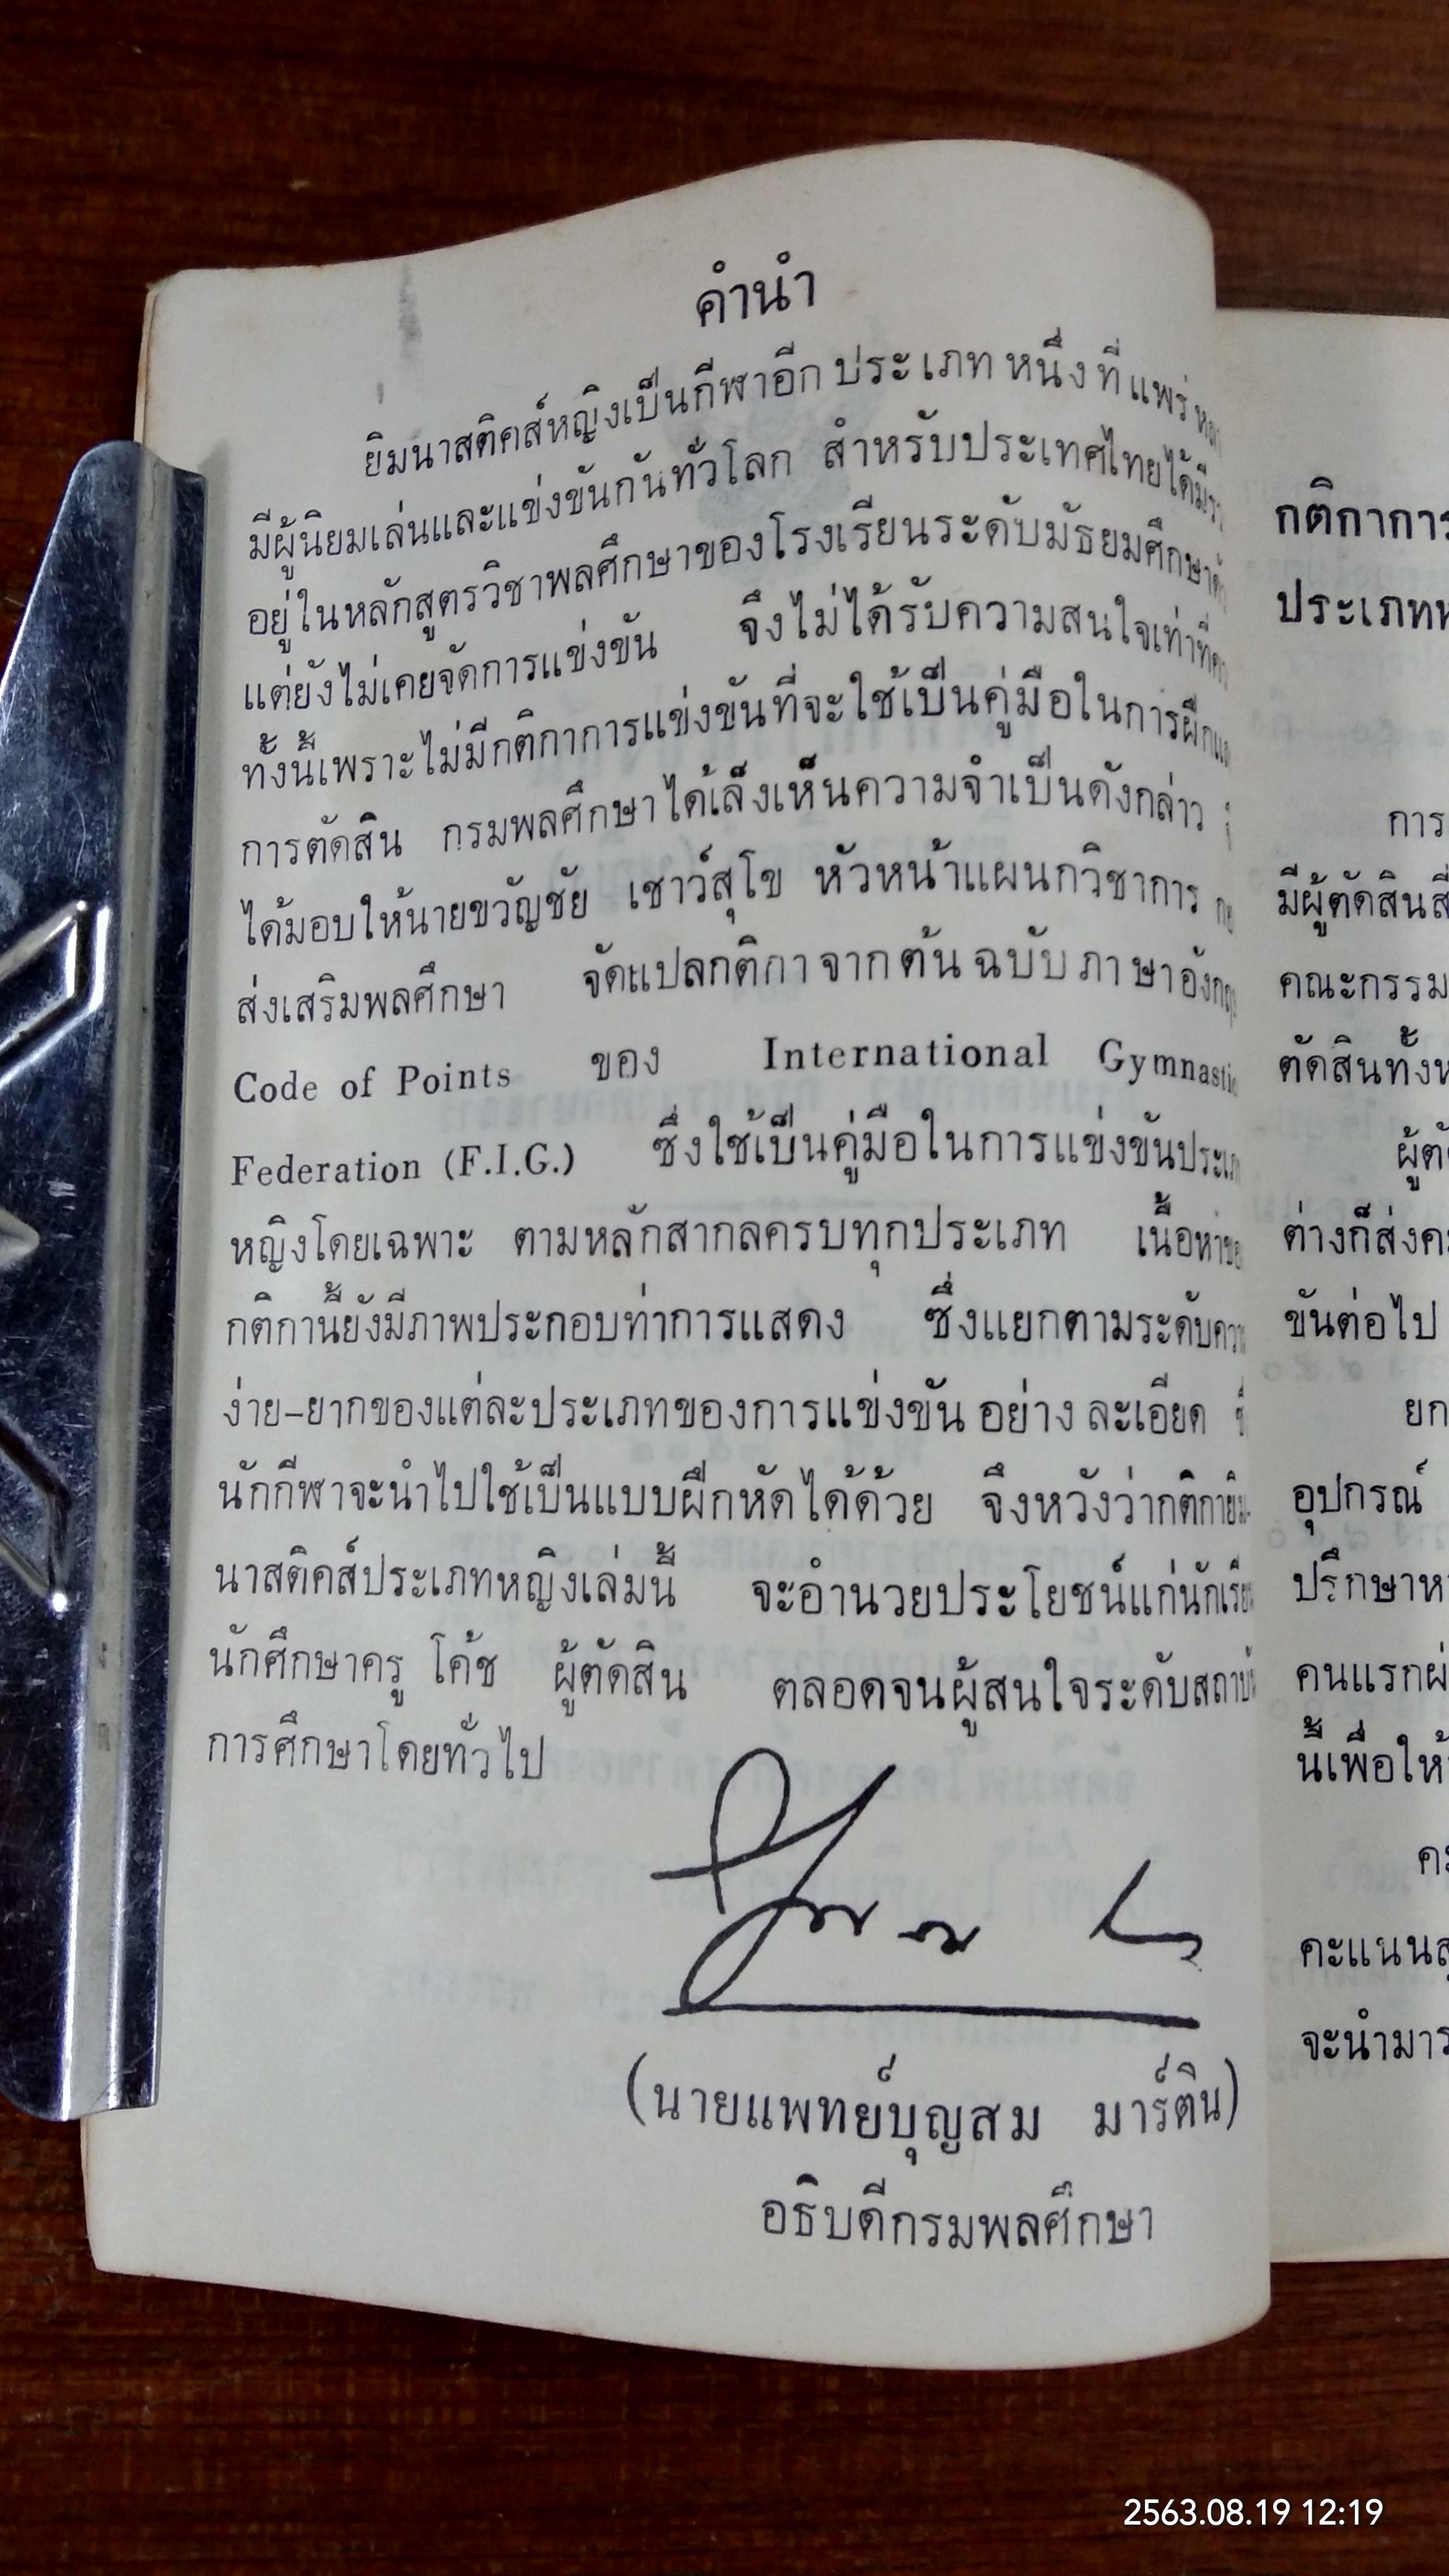 คำนำ
ยิมนาสติคส์หญิงเป็นกีฬาอีกประเภทหนึ่งที่แพร่
มีผู้นิยมเล่นและแข่งขันกันทั่วโลก สำหรับประเทศไทยได้มี
อยู่ในหลักสูตรวิชาพลศึกษาของโรงเรียนระดับมัธยมศึกษา
แต่ยังไม่เคยจัดการแข่งขัน จึงไม่ได้รับความสนใจเท่าที่
ทั้งนี้เพราะไม่มีกติกาการแข่งขันที่จะใช้เป็นคู่มือในการฝึก
การตัดสิน กรมพลศึกษาได้เล็งเห็นความจำเป็นดังกล่าว
ได้มอบให้นายขวัญชัย เชาว์สุโข หัวหน้าแผนกวิชาการ
ส่งเสริมพลศึกษา จัดแปลกติกาจากต้นฉบับภาษาอังกฤษ
Code of Points ของ International Gymnastic
Federation (F.I.G.) ซึ่งใช้เป็นคู่มือในการแข่งขันประเภท
หญิงโดยเฉพาะ ตามหลักสากลครบทุกประเภท เนื้อหา
กติกานี้ยังมีภาพประกอบท่าการแสดง ซึ่งแยกตามระดับความ
ง่าย-ยากของแต่ละประเภทของการแข่งขันอย่างละเอียด
นักกีฬาจะนำไปใช้เป็นแบบฝึกหัดได้ด้วย จึงหวังว่ากติกายิม-
นาสติคส์ประเภทหญิงเล่มนี้ จะอำนวยประโยชน์แก่นักเรียน
นักศึกษาครู โค้ช ผู้ตัดสิน ตลอดจนผู้สนใจระดับสถาบัน
การศึกษาโดยทั่วไป
(นายแพทย์บุญสม มาร์ติน)
อธิบดีกรมพลศึกษา
กติกาการ
ประเภท
การ
มีผู้ตัดสิน
คณะกรรม
ตัดสินทั้ง
ต่างก็ส่ง
ขันต่อไป
ยก
อุปกรณ์
ปรึกษา
คนแรก
นี้เพื่อให้
คะแนน
จะนำมา
2563.08.19 12:19